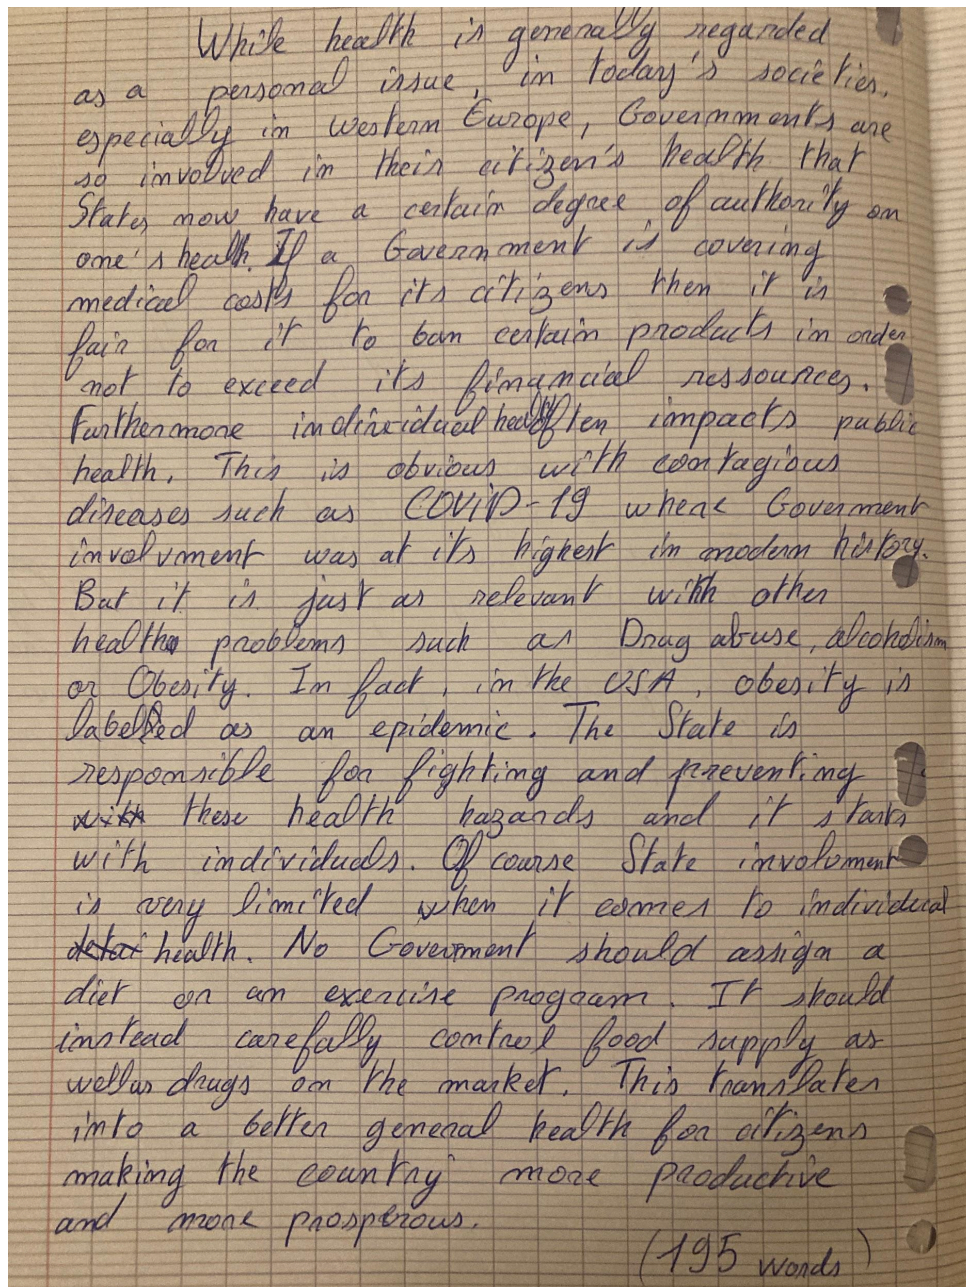 While health is generally regarded
as a personal issue, in today's societies,
especially in Western Europe, Governments are
so involved in their citizen's health that
States now have a certain degree of authority on
one's health. If a Government is covering
medical costs for its citizens then it is
fair for it to ban certain products in order
not to exceed its financial ressources.
Furthermore individual health often impacts public
health. This is obvious with contagious
diseases such as COViD-19 where Goverment
involvment was at its highest in modern history.
But it is just as relevant with other
health problems such as Drug abuse, alcoholism
or Obesity. In fact, in the USA, obesity is
labelled as an epidemic. The State is
responsible for fighting and preventing
with these health hazards and it starts
with individuals. Of course State involvment
is very limited when it comes to individual
health. No Goverment should assign a
diet or an exercise program. It should
instead carefully control food supply as
well as drugs on the market. This translates
into a better general health for citizens
making the country more productive
and more prosperous.
(195 words)